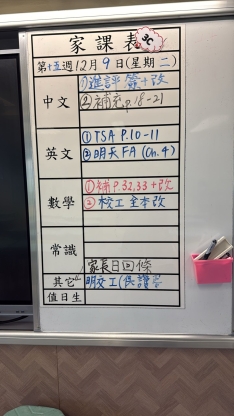 家課表 3C
第十五週12月9日(星期二)
中文 ①進評簽+改
②補充p.18-21
英文 ①TSA P.10-11
②明天FA (Ch.4)
數學 ①補P.32,33+改
②校工全本改
常識
家長日回條
其它 明交工(保護
值日生